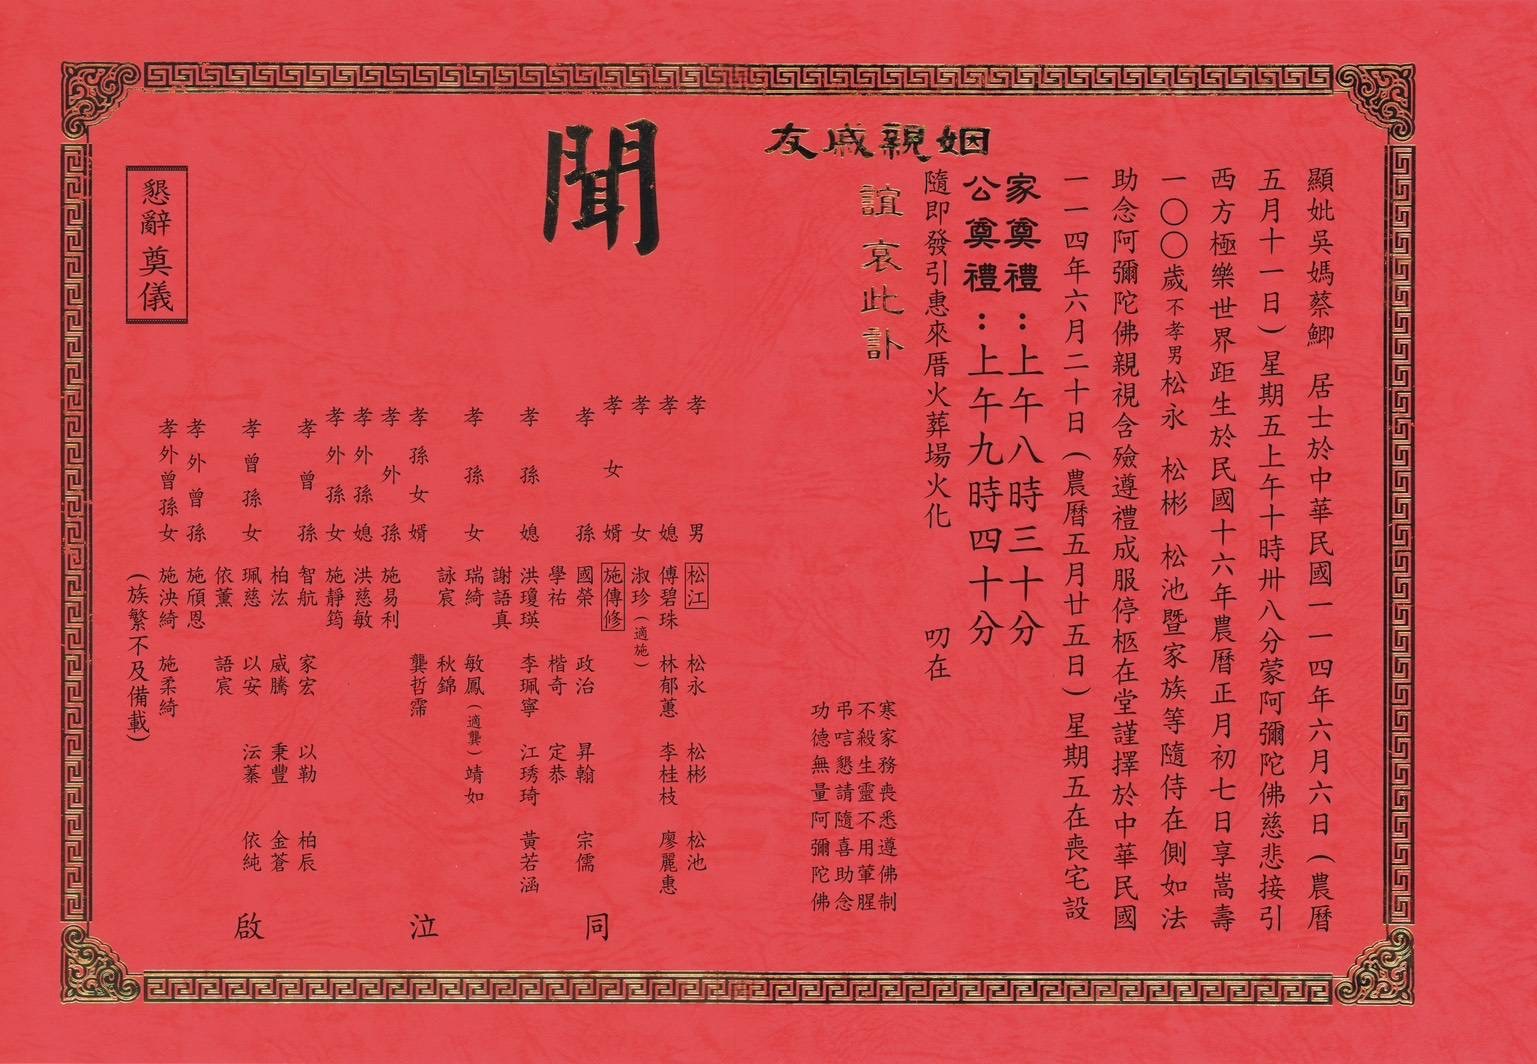 顯妣吳媽蔡鯽 居士於中華民國一一四年六月六日(農曆
五月十一日)星期五上午十時卅八分蒙阿彌陀佛慈悲接引
西方極樂世界距生於民國十六年農曆正月初七日享嵩壽
一〇〇歲不孝男松永 松彬 松池暨家族等隨侍在側如法
助念阿彌陀佛親視含殮遵禮成服停柩在堂謹擇於中華民國
一一四年六月二十日(農曆五月廿五日)星期五在喪宅設
家奠禮：上午八時三十分
公奠禮：上午九時四十分
隨即發引惠來厝火葬場火化 叨在
姻親戚友
誼 哀此訃
寒家務喪悉遵佛制
不殺生靈不用葷腥
弔唁懇請隨喜助念
功德無量阿彌陀佛
聞
孝男 松江 松永 松彬 松池
孝媳 傅碧珠 林郁蕙 李桂枝 廖麗惠
孝女 淑珍(適施)
孝女婿 施傳修
孝孫 國榮 政治 昇翰 宗儒
學祐 楷奇 定恭
孝孫媳 洪瓊瑛 李珮寧 江琇琦 黃若涵
謝語真
孝孫女 瑞綺 敏鳳(適龔) 靖如
詠宸 秋錦
孝孫女婿 龔哲霈
孝外孫 施易利
孝外孫媳 洪慈敏
孝外孫女 施靜筠
孝曾孫 智航 家宏 以勒 柏辰
柏汯 威騰 秉豐 金蒼
孝曾孫女 珮慈 以安 沄蓁 依純
依薰 語宸
孝外曾孫 施頎恩
孝外曾孫女 施泱綺 施柔綺
(族繁不及備載)
同 泣 啟
懇辭奠儀